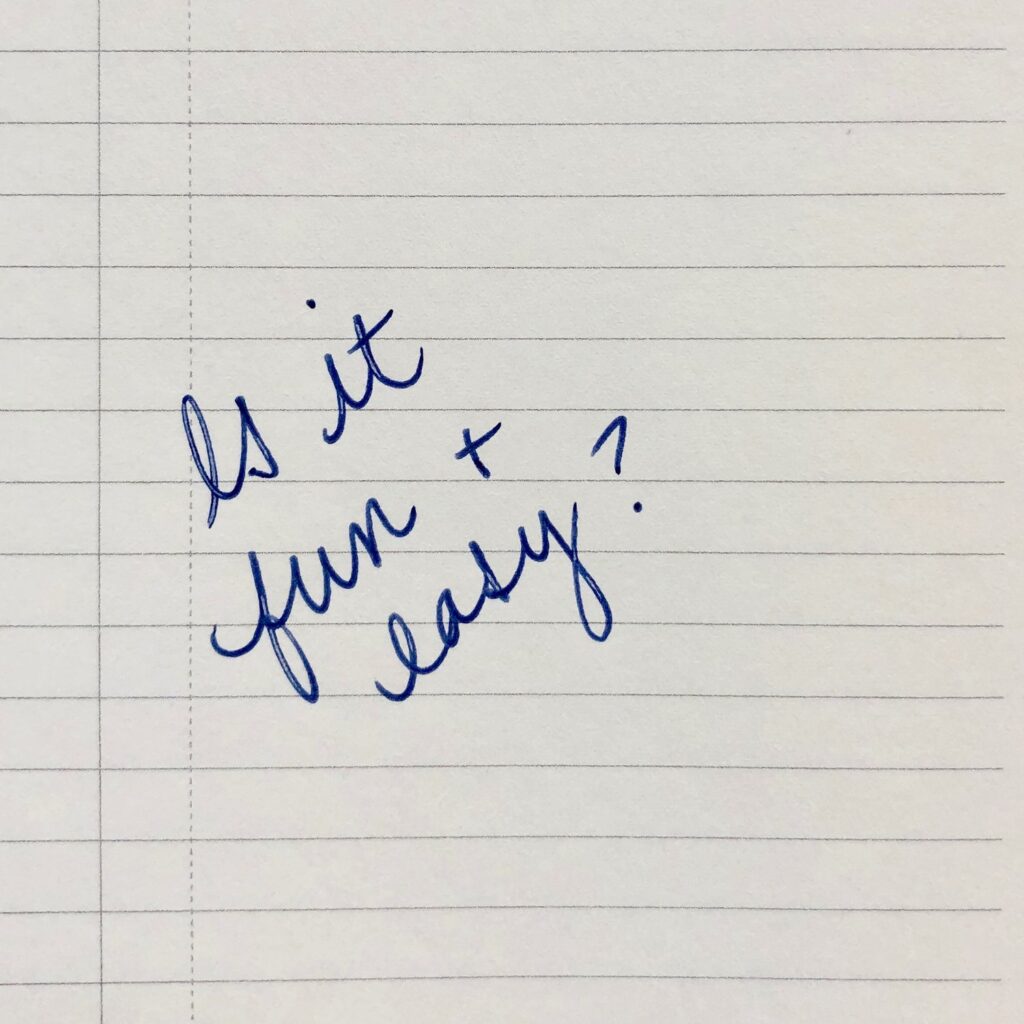 Is it
fun +
easy?